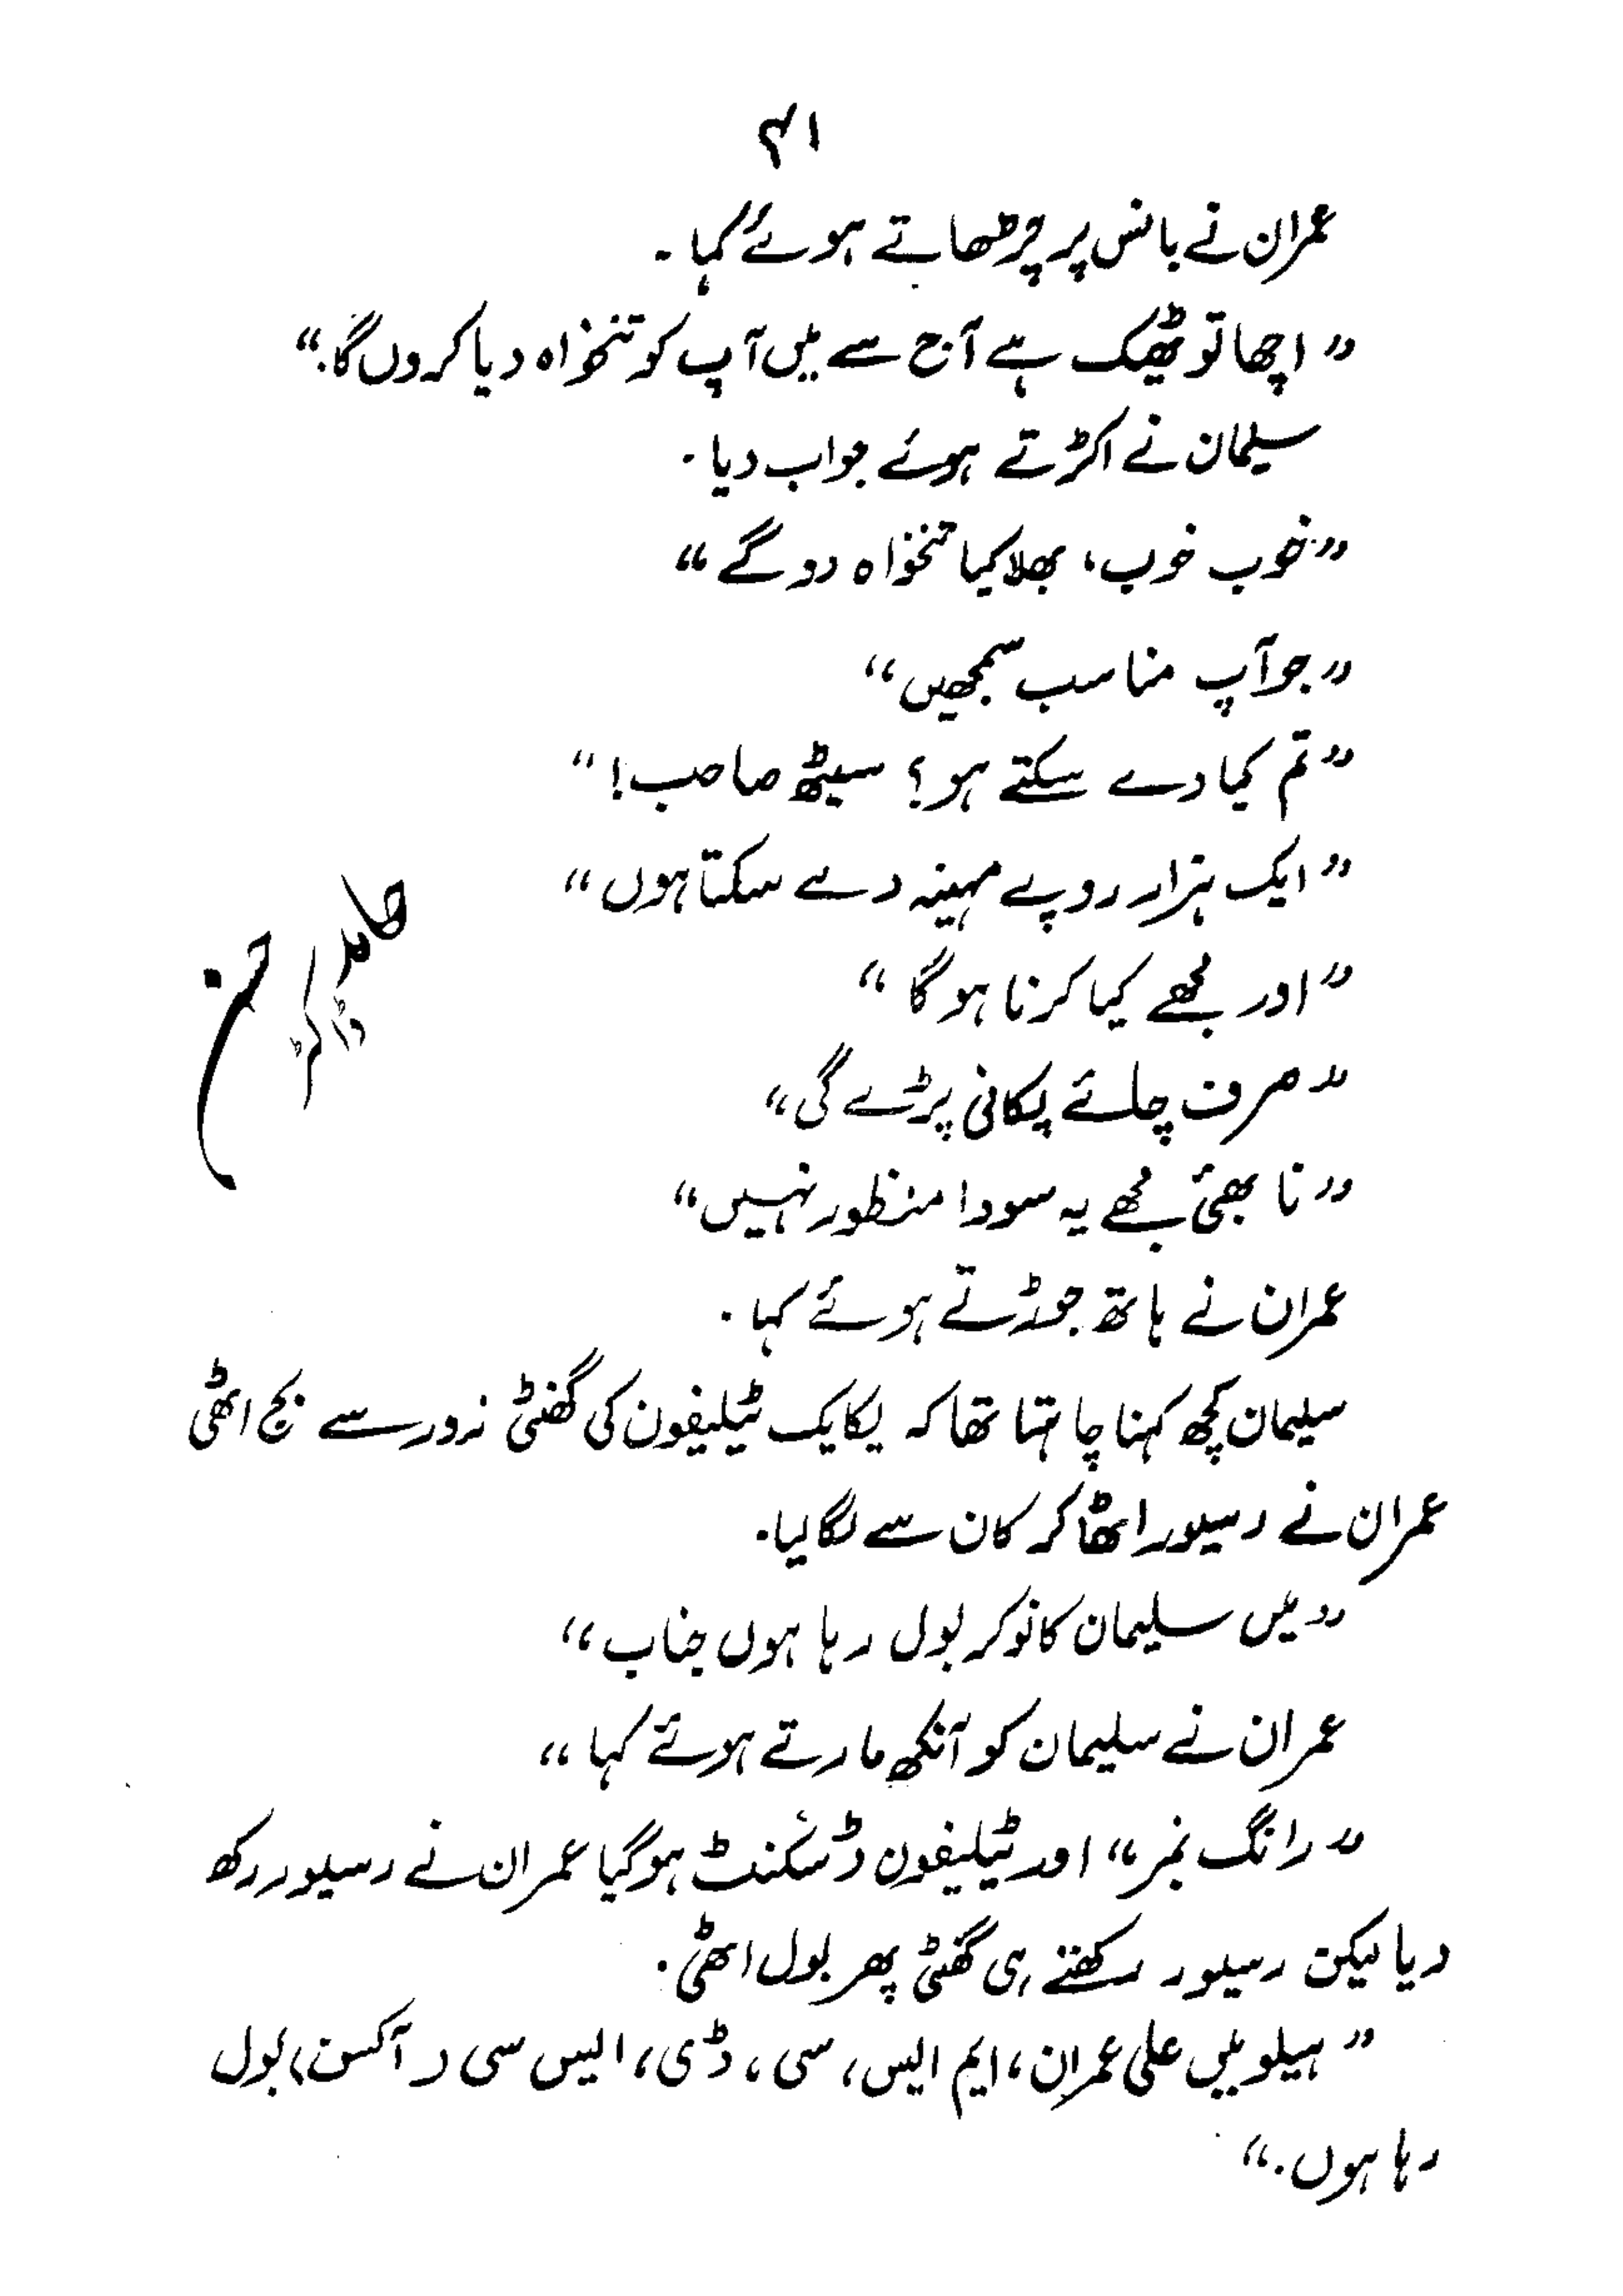 ۴۱
عمران نے بانس پر چڑھاتے ہوئے کہا۔
”اچھا تو ٹھیک ہے آج سے میں آپ کو تنخواہ دیا کروں گا۔“
سلیمان نے اکڑتے ہوئے جواب دیا۔
”خوب خوب، بھلا کیا تنخواہ دو گے“
”جو آپ مناسب سمجھیں“
”تم کیا دے سکتے ہو؟ سیٹھ صاحب!“
”ایک ہزار روپے مہینہ دے سکتا ہوں“
”اور مجھے کیا کرنا ہو گا“
”صرف چائے پکانی پڑے گی“
”نا بھئی مجھے یہ سودا منظور نہیں“
عمران نے ہاتھ جوڑتے ہوئے کہا۔
سلیمان کچھ کہنا چاہتا تھا کہ یکایک ٹیلیفون کی گھنٹی زور سے بج اٹھی
عمران نے رسیور اٹھا کر کان سے لگا لیا۔
”میں سلیمان کا نوکر بول رہا ہوں جناب“
عمران نے سلیمان کو آنکھ مارتے ہوئے کہا“
”رانگ نمبر“ اور ٹیلیفون ڈسکنٹ ہو گیا عمران نے رسیور رکھ
دیا لیکن رسیور رکھتے ہی گھنٹی پھر بول اٹھی۔
”ہیلو میں علی عمران، ایم ایس، سی، ڈی، ایس سی (آکسن) بول
رہا ہوں۔“
حامد
ڈاکٹر